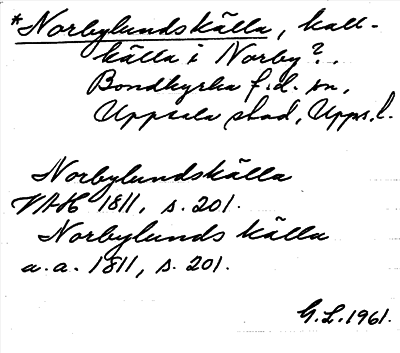 *Norbylundskälla, kall-
källa i Norby?.
Bondkyrka f.d. sn,
Uppsala stad, Upps.l.
Norbylundskälla
VAH 1811, s. 201.
Norbylunds källa
a.a. 1811, s. 201.
G.L. 1961.